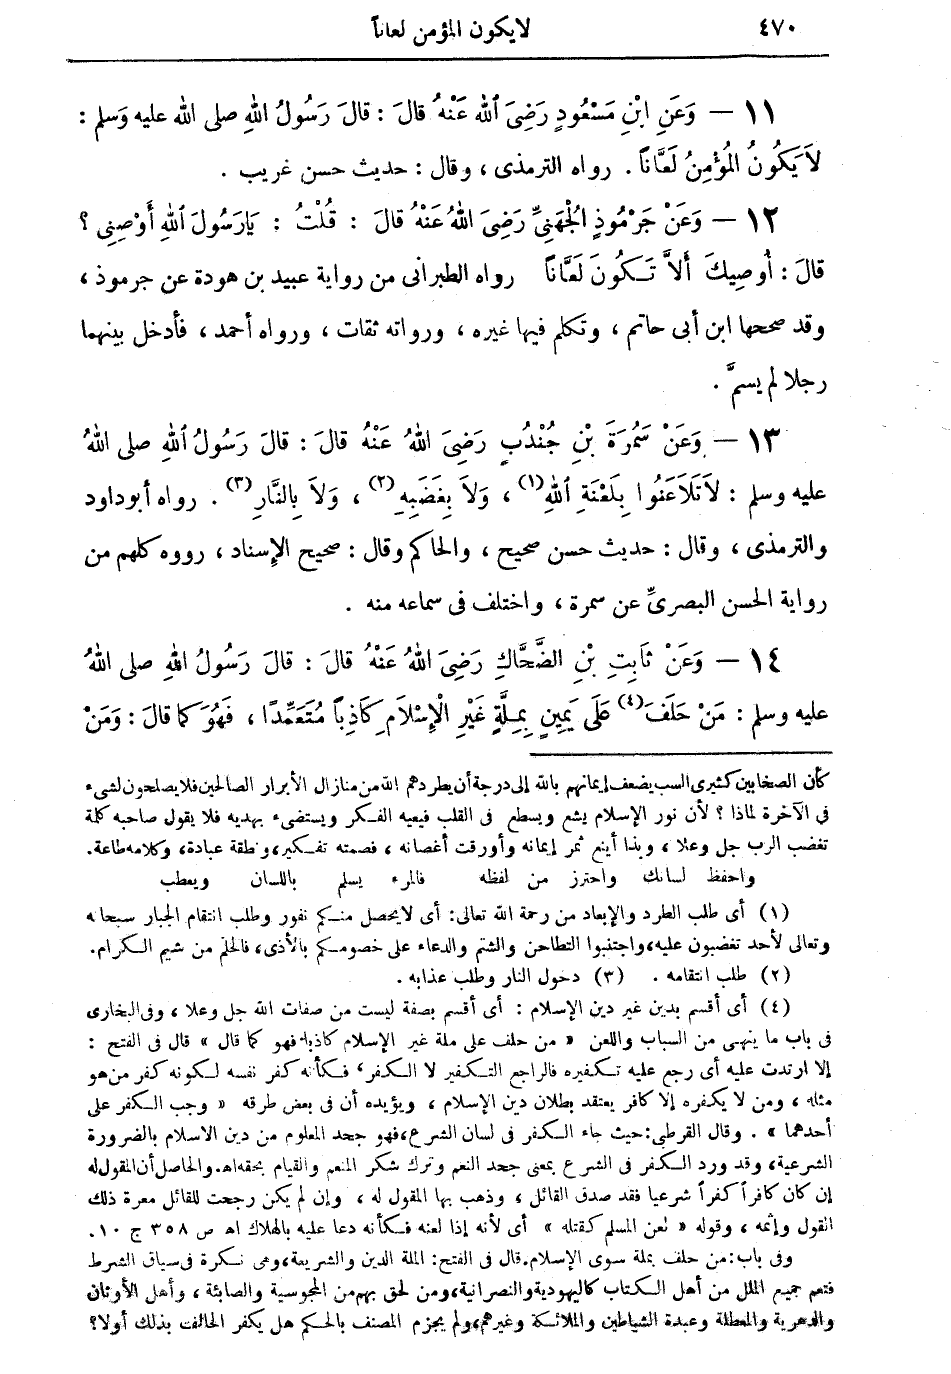 ٤٧٠ لا يكون المؤمن لعاناً
١١ — وَعَنِ ابْنِ مَسْعُودٍ رَضِيَ اللهُ عَنْهُ قَالَ : قَالَ رَسُولُ اللهِ صلى الله عليه وَسلم :
لاَ يَكُونُ المُؤْمِنُ لَعَّاناً . رواه الترمذى ، وقال : حديث حسن غريب .
١٢ — وَعَنْ جَرْمُوذٍ الْجُهَنِيِّ رَضِيَ اللهُ عَنْهُ قَالَ : قُلْتُ : يَارَسُولَ اللهِ أَوْصِنِي ؟
قَالَ : أُوصِيكَ أَلاَّ تَكُونَ لَعَّاناً رواه الطبرانى من رواية عبيد بن هودة عن جرموذ ،
وقد صححها ابن أبى حاتم ، وتكلم فيها غيره ، ورواته ثقات ، ورواه أحمد ، فأدخل بينهما
رجلا لم يسمَّ .
١٣ — وَعَنْ سَمُرَةَ بْنِ جُنْدُبٍ رَضِيَ اللهُ عَنْهُ قَالَ : قَالَ رَسُولُ اللهِ صلى اللهُ
عليه وسلم : لاَتَلاَعَنُوا بِلَعْنَةِ اللهِ(١) ، وَلاَ بِغَضَبِهِ(٢) ، وَلاَ بِالنَّارِ(٣) . رواه أبو داود
والترمذى ، وقال : حديث حسن صحيح ، والحاكم وقال : صحيح الإسناد ، رووه كلهم من
رواية الحسن البصرىِّ عن سمرة ، واختلف فى سماعه منه .
١٤ — وَعَنْ ثَابِتِ بْنِ الضَّحَّاكِ رَضِيَ اللهُ عَنْهُ قَالَ : قَالَ رَسُولُ اللهِ صلى اللهُ
عليه وسلم : مَنْ حَلَفَ(٤) عَلَى يَمِينٍ بِمِلَّةٍ غَيْرِ الْإِسْلاَمِ كَاذِباً مُتَعَمِّدًا ، فَهُوَ كَمَا قَالَ : وَمَنْ
كأن الصخابين كثيرى السب يضعف إيمانهم بالله إلى درجة أن يطردهم الله من منازل الأبرار الصالحين فلا يصلحون لشىء
فى الآخرة لماذا ؟ لأن نور الإسلام يشع ويسطع فى القلب فيعيه الفكر ويستضىء بهديه فلا يقول صاحبه كلمة
تغضب الرب جل وعلا ، وبذا أينع ثمر إيمانه وأورقت أغصانه ، فصمته تفكير، ونطقه عبادة، وكلامه طاعة.
واحفظ لسانك واحترز من لفظه فالمرء يسلم باللسان ويعطب
(١) أى طلب الطرد والإبعاد من رحمة الله تعالى: أى لا يحصل منكم نفور وطلب انتقام الجبار سبحانه
وتعالى لأحد تغضبون عليه، واجتنبوا التطاحن والشتم والدعاء على خصومكم بالأذى، فالحلم من شيم الكرام.
(٢) طلب انتقامه . (٣) دخول النار وطلب عذابه .
(٤) أى أقسم بدين غير دين الإسلام : أى أقسم بصفة ليست من صفات الله جل وعلا ، وفى البخارى
فى باب ما ينهى من السباب واللعن « من حلف على ملة غير الإسلام كاذبا فهو كما قال » قال فى الفتح :
إلا ارتدت عليه أى رجع عليه تكفيره فالراجع التكفير لا الكفر، فكأنه كفر نفسه لكونه كفر من هو
مثله ، ومن لا يكفره إلا كافر يعتقد بطلان دين الإسلام ، ويؤيده أن فى بعض طرقه « وجب الكفر على
أحدهما » . وقال القرطبى: حيث جاء الكفر فى لسان الشرع، فهو جحد المعلوم من دين الاسلام بالضرورة
الشرعية، وقد ورد الكفر فى الشرع بمعنى جحد النعم وترك شكر المنعم والقيام بحقه اه. والحاصل أن المقول له
إن كان كافراً كفراً شرعيا فقد صدق القائل ، وذهب بها المقول له ، وإن لم يكن رجعت للقائل معرة ذلك
القول وإثمه ، وقوله « لعن المسلم كقتله » أى لأنه إذا لعنه فكأنه دعا عليه بالهلاك اه ص ٣٥٨ ج ١٠ .
وفى باب: من حلف بملة سوى الإسلام. قال فى الفتح: الملة الدين والشريعة، وهى نكرة فى سياق الشرط
فتعم جميع الملل من أهل الكتاب كاليهودية والنصرانية، ومن لحق بهم من المجوسية والصابئة ، وأهل الأوثان
والدهرية والمعطلة وعبدة الشياطين والملائكة وغيرهم، ولم يجزم المصنف بالحكم هل يكفر الحالف بذلك أولا؟